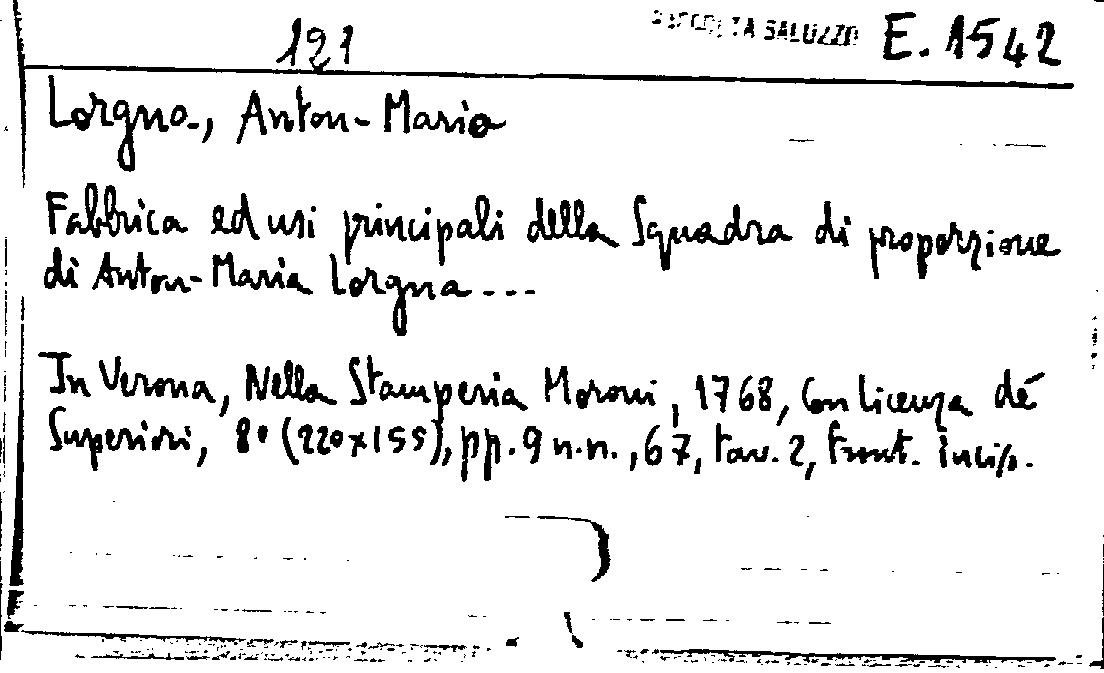 121 RACCOLTA SALUZZO E. 1542
Lorgna, Anton-Maria
Fabbrica ed usi principali della Squadra di proporzione
di Anton-Maria Lorgna ...
In Verona, Nella Stamperia Moroni, 1768, Con licenza dé
Superiori, 8° (220x155), pp. 9 n.n., 67, tav. 2, front. incis.